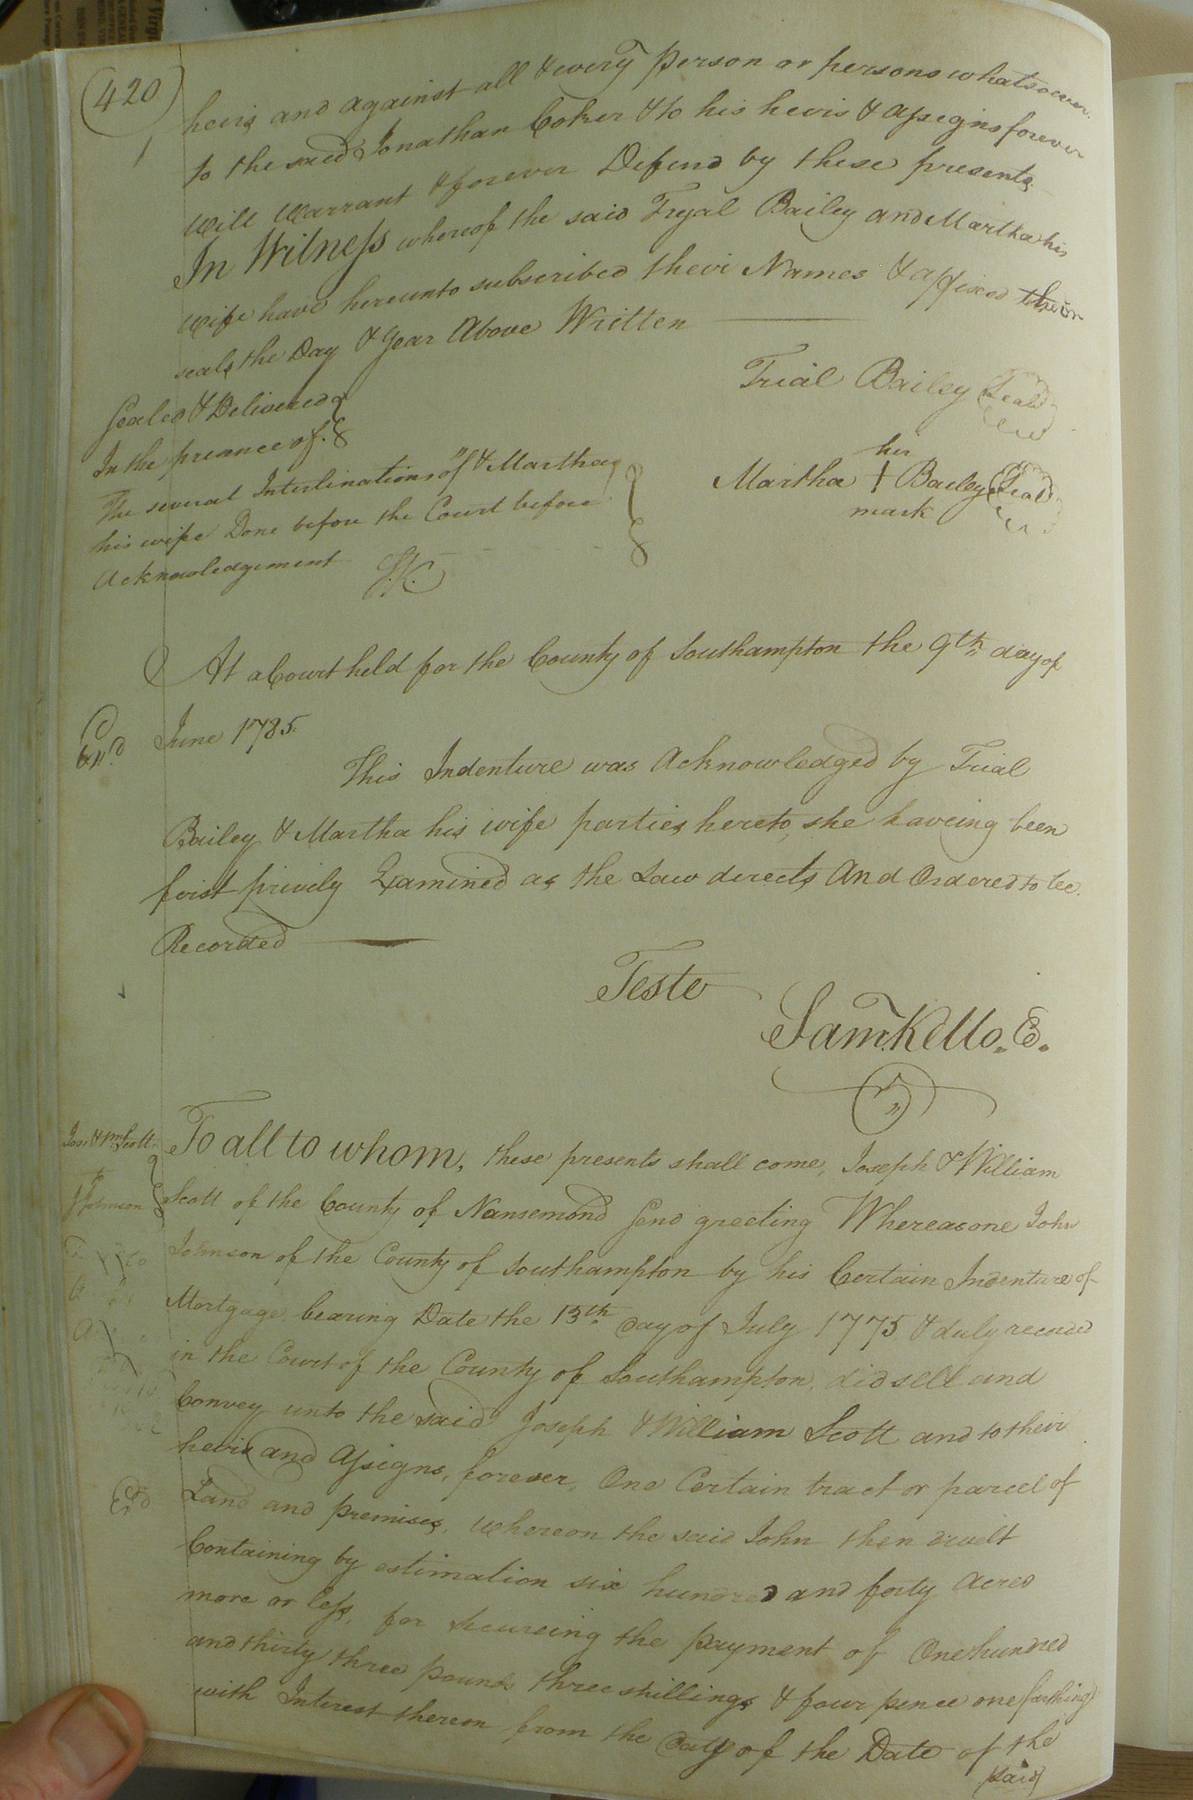 420
heirs and against all & every person or persons whatsoever
to the said Jonathan Coker & to his heirs & assigns forever
will warrant & forever Defend by these presents
In Witness whereof the said Tryal Bailey and Martha his
wife have hereunto subscribed their Names & affixed their
seals the Day & year Above Written
Sealed & Delivered
In the presence of.
Trial Bailey Seal
The several Interlinations of & Martha
his wife Done before the Court before
Acknowledgement S.K.
her
Martha + Bailey Seal
mark
At a Court held for the County of Southampton the 9th day of
Exd
June 1785.
This Indenture was Acknowledged by Trial
Bailey & Martha his wife parties hereto, she haveing been
first privily Examined as the Law directs And Ordered to be
Recorded
Teste
Saml. Kello. C.
Jos. & Wm Scott
to
J Johnson
To all to whom, these presents shall come, Joseph & William
Scott of the County of Nansemond Send greeting Whereas one John
Johnson of the County of Southampton by his Certain Indenture of
Mortgage bearing Date the 13th day of July 1775 & duly recorded
in the Court of the County of Southampton, did sell and
Convey unto the said Joseph & William Scott and to their
heirs and Assigns, forever, One Certain tract or parcel of
Exd
Land and premises, whereon the said John then dwelt
Containing by estimation six hundred and forty Acres
more or less, for secureing the payment of One hundred
and thirty three pounds three shillings & four pence one farthing
with Interest thereon from the day of the Date of the
said